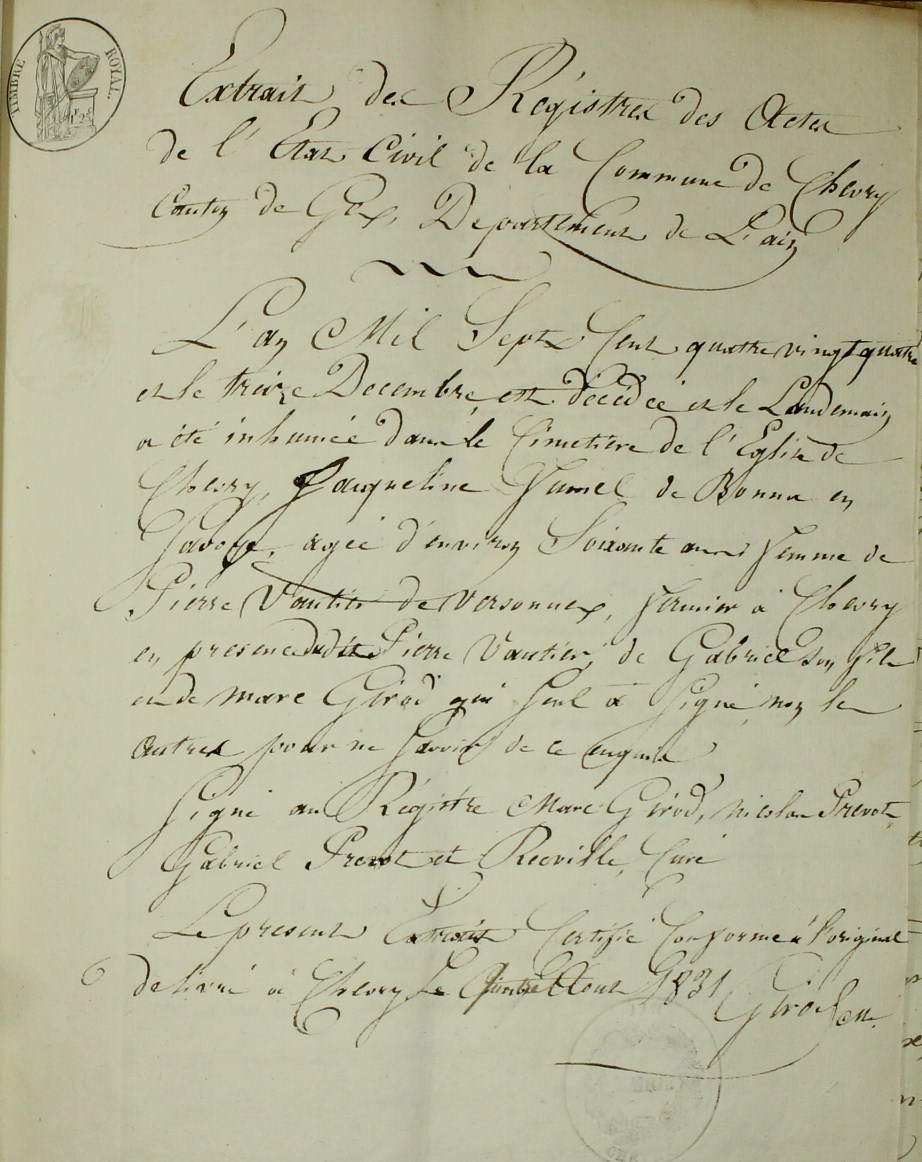 TIMBRE ROYAL.
1F 25
Extrait des Régistres des Actes
de l'Etat Civil de la Commune de Chevry
Canton de Gex, Departement de L'ain
L'an Mil Sept Cent quatre vingt quatre
et le treize Decembre, est décédée et le Landemain
a été inhumée dans le Cimetière de l'Eglise de
Chevry, Jacqueline de Bonne en
Savoye, agée d'environ Soixante ans femme de
Pierre Vautier de Versonnex, fermier à Chevry
en presence dudit Pierre Vautier, de Gabriel Son fils
et de Marc Girod qui Seul a Signé, non les
autres pour ne Savoir de ce enquis
Signé au Régistre Marc Girod, Nicolas Prevot,
Gabriel Prevot et Curé
Le present Extrait Certifié Conforme à l'original
delivré à Chevry Le Aout 1831
Girod